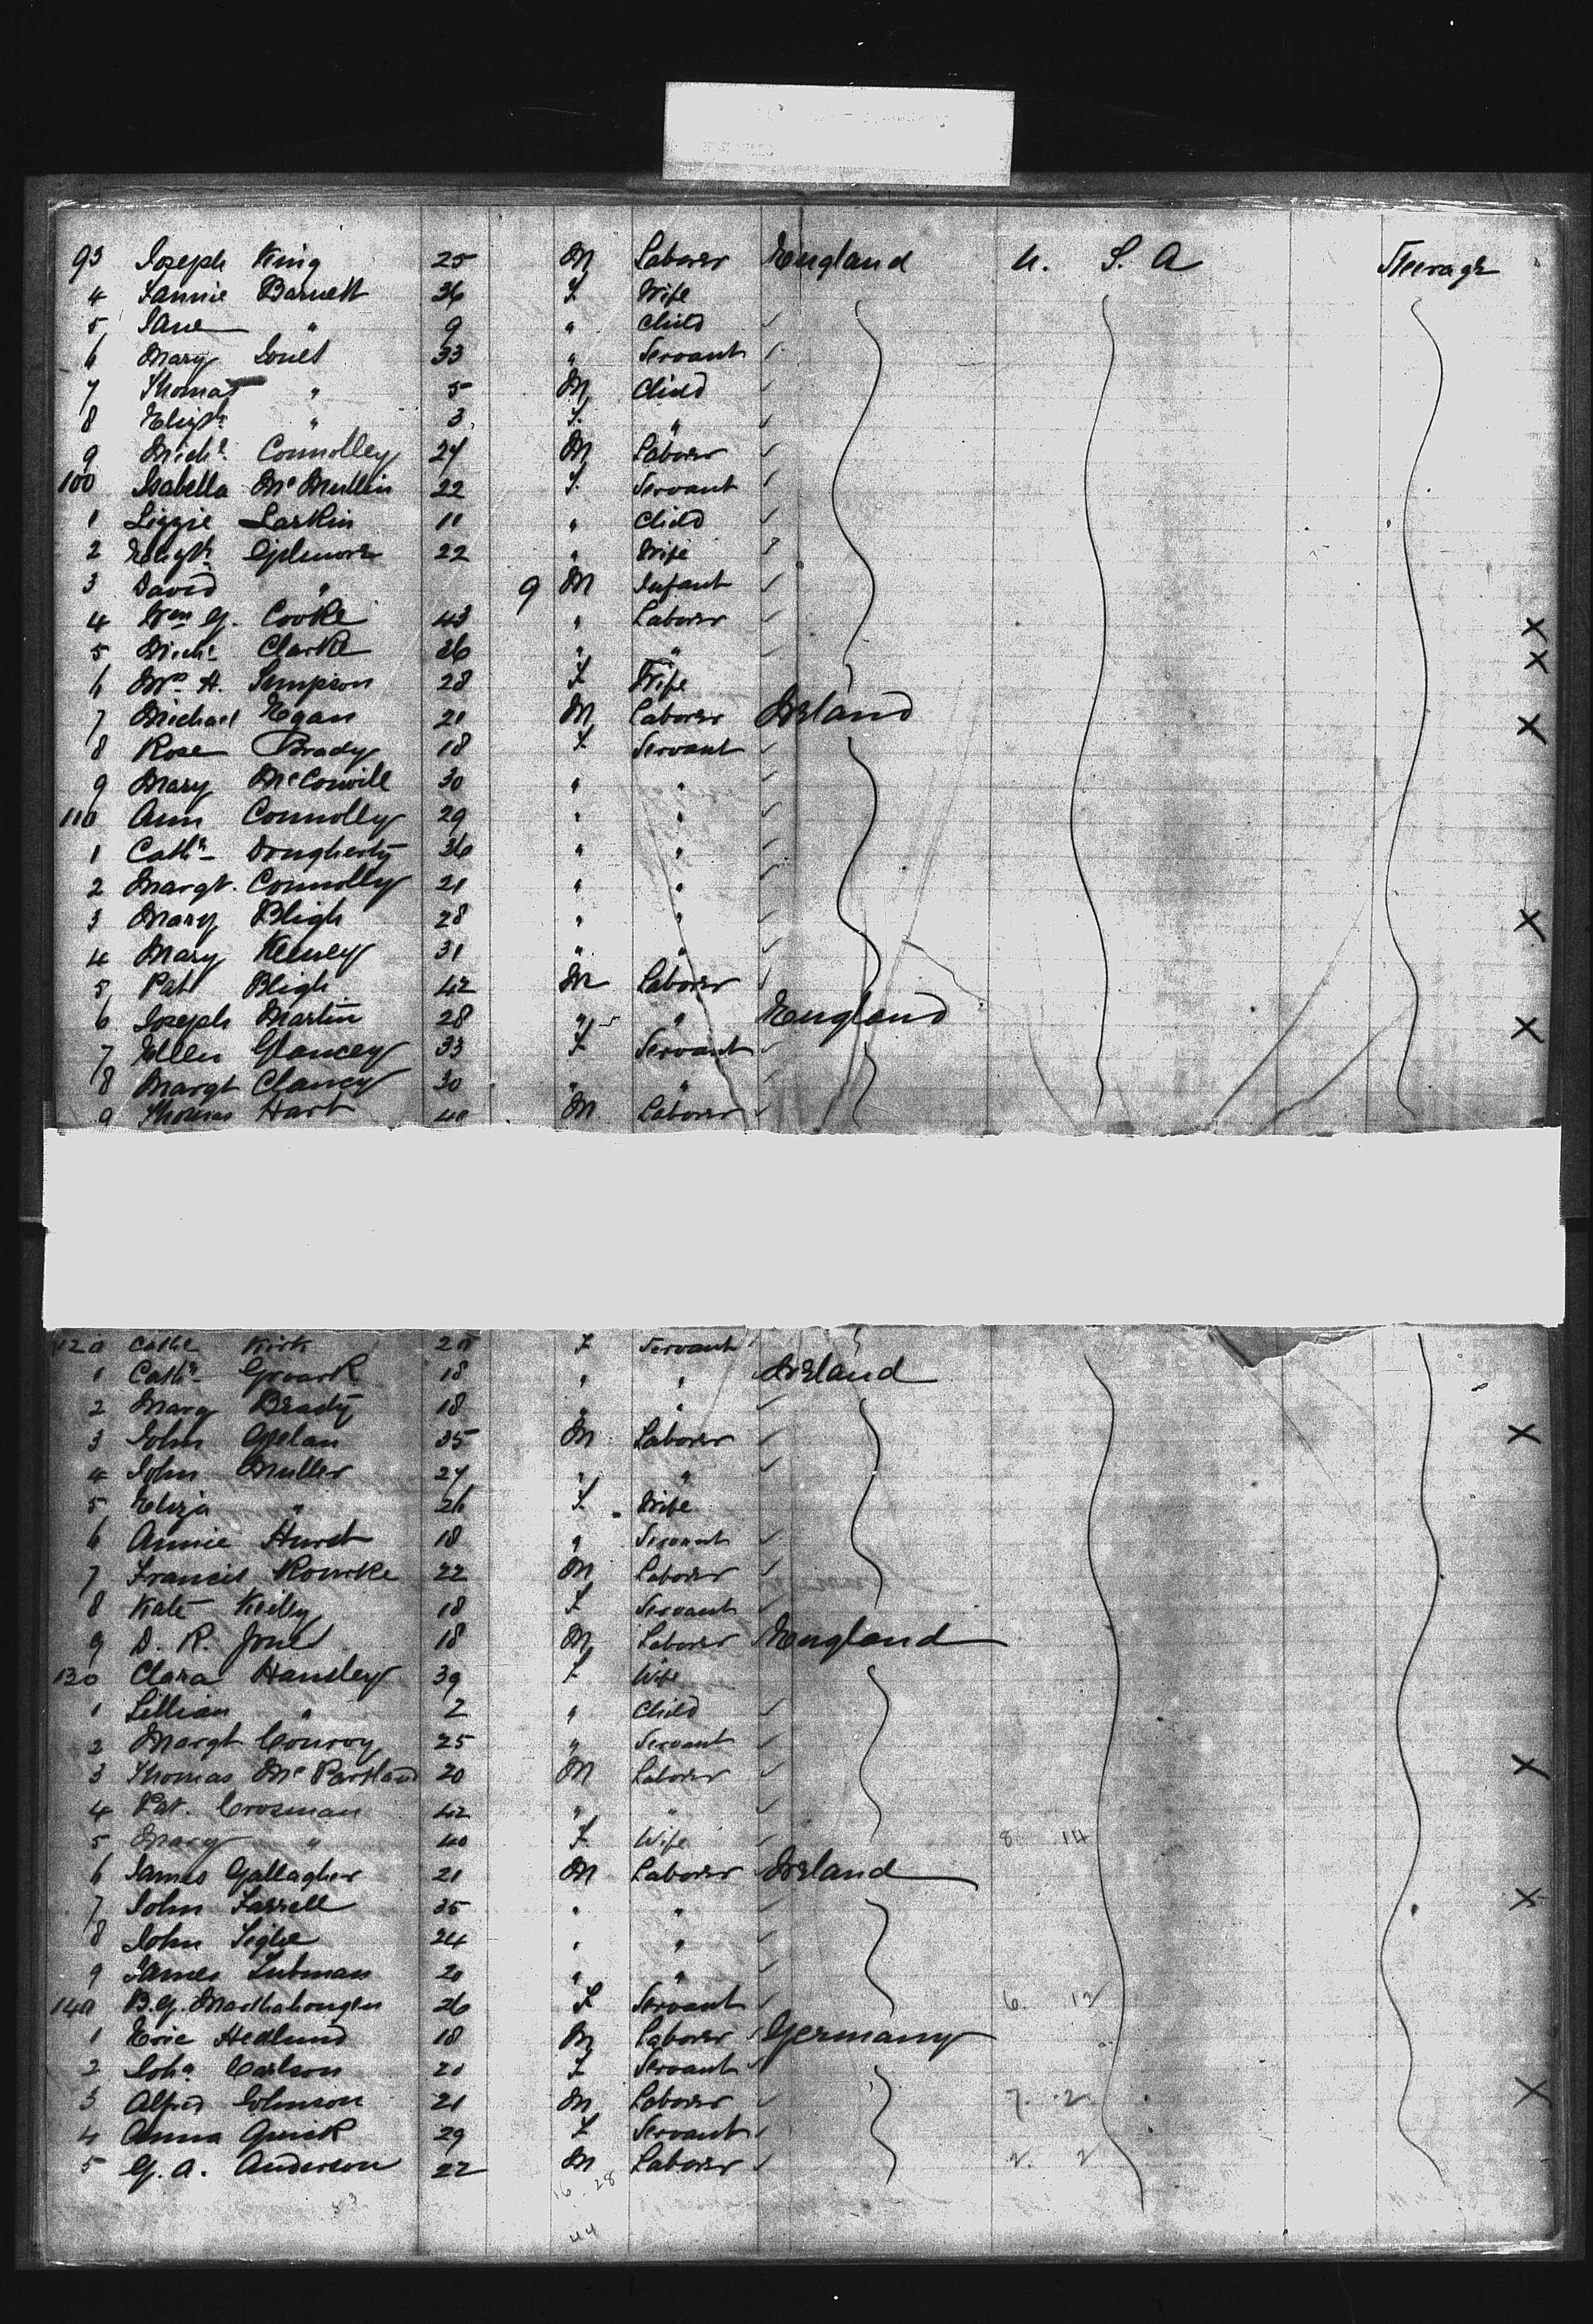 93 Joseph King 25 M Laborer England U. S. A Steerage
4 Fannie Barnett 36 F Wife
5 Jane " 9 " Child ✓
6 Mary Jones 33 " Servant ✓
7 Thomas " 5 M Child ✓
8 Elizth " 3 F " ✓
9 Michl Connolley 24 M Laborer ✓
100 Isabella McMullin 22 F Servant ✓
1 Lizzie Larkin 11 " Child ✓
2 Elizth Gilmore 22 " Wife
3 David " 9 M Infant ✓
4 Wm G. Cooke 43 " Laborer ✓ X
5 Michl Clarke 36 " " ✓ X
6 Mrs A. Simpson 28 F Wife
7 Michael Egan 21 M Laborer Ireland X
8 Rose Brady 18 F Servant ✓
9 Mary McConvill 30 " " ✓
110 Ann Connolly 29 " " ✓
1 Cathn Dougherty 36 " " ✓
2 Margt. Connolly 21 " " ✓
3 Mary Bligh 28 " " ✓ X
4 Mary Kenney 31 " " ✓
5 Pat Bligh 42 M Laborer ✓
6 Joseph Martin 28 " " England X
7 Ellen Glancey 33 F Servant ✓
8 Margt Clancy 30 " " ✓
9 Thomas Hart 40 M Laborer ✓
120 Cathe Kirk F Servant
1 Cathn 18 " " Ireland
2 Mary Brady 18 " " ✓
3 John 35 M Laborer ✓ X
4 John Muller 24 " " ✓
5 Eliza " 26 F Wife
6 Annie Hurst 18 " Servant ✓
7 Francis Rourke 22 M Laborer ✓
8 Kate Reilly 18 F Servant ✓
9 D. R. Jones 18 M Laborer England
130 Clara Hansley 39 F Wife
1 Lillian " 2 " Child ✓
2 Margt Conroy 25 " Servant ✓
3 Thomas McPartland 20 M Laborer ✓ X
4 Pat. Crosman 42 " " ✓
5 Mary " 40 F Wife ✓ 8 14
6 James Gallagher 21 M Laborer Ireland
7 John Farrell 35 " " ✓ X
8 John Tighe 24 " " ✓
9 James 20 " " ✓
140 B. G. 26 F Servant ✓ 6. 12
1 Eric Hedlund 18 M Laborer Germany
2 Joha Carlson 20 F Servant ✓
3 Alfred Johnson 21 M Laborer ✓ 7. 2. X
4 Anna Quick 29 F Servant ✓
5 G. A. Anderson 22 M Laborer ✓ 2. 2
16 28
44